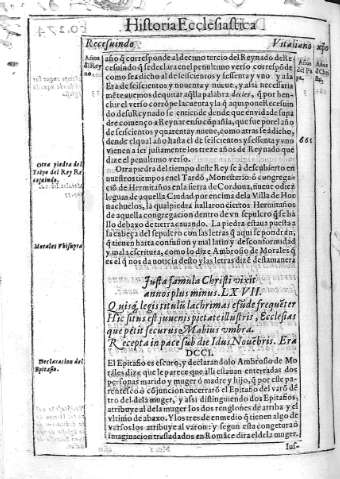 Historia Ecclesiastica
Recesuindo
Vitaliano
año q̃ corresponde al decimo tercio del Reynado de Re
cesuindo q̃ se declara en el penultimo verso correspõde
como se a dicho al de seiscientos y sessenta y vno y a la
Era de seiscientos y nouenta y nueue, y assi necessaria
mẽte auemos de quitar aq̃lla palabra decies, q̃ por hen-
chir el verso corrõpe la cuenta y la q̃ aqui pone Recesuin
do de su Reynado se entiende desde que en vida de su pa
dre començo a Reynar en su cõpañia, que fue por el año
de seiscientos y quarenta y nueue, como atras se a dicho,
desde el qual año hasta el de seiscientos y sessenta y vno
vienen a ser justamente los treze años de Reynado que
dize el penultimo verso.
661
Otra piedra del tiempo deste Rey se à descubierto en
nuestros tiempos en el Tardõ, Monesterio ò congrega
ciõ de Hermitaños en la sierra de Cordoua, nueue ò diez
leguas de aquella Ciudad por encima de la Villa de Hor
nachuelos, la qual piedra hallaron ciertos Hermitaños
de aquella congregacion dentro de vn sepulcro q̃ se ha
llo debaxo de tierra cauando. La piedra estaua puesta a
la cabeça del sepulcro con las letras q̃ aqui se pondrán,
q̃ tienen harta confusion y mal latin y desconformadad
y mala escritura, como lo dize Ambrosio de Morales q̃
es el q̃ nos da noticia desto y las letras dizẽ desta manera
Otra piedra del
Tiẽpo del Rey Re
cesuindo.
Morales vbi supra
Justa famula Christi vixit
annos plus minus. LXVII.
Quisq̃ legis titulũ lachrimas efũde frequẽter
Hic situs est juuenis pietate illustris, Ecclesias
que petit securus Mabius vmbra.
Recepta in pace sub die Idus Nouẽbris. Era
DCCL
Declaracion del
Epitafio.
El Epitafio es escuro, y declarandolo Ambrosio de Mo
rales dize que le parece que alli estauan enterradas dos
personas marido y muger ò madre y hijo, q̃ por este pa-
rentesco ò cõjuncion encerrarõ el Epitafio del varõ dẽ
tro del de la muger, y assi distinguiendo dos Epitafios,
atribuye al de la muger los dos renglones de arriba y el
vltimo de abaxo. Y los tres de en medio q̃ tienen algo de
versos los atribuye al varon: y segun esta congetura ò
imaginacion trasladados en Romãce dira el de la muger.
Jus-